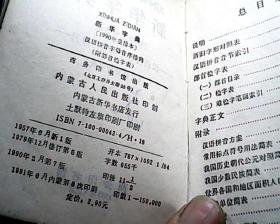 XINHUA ZIDIAN
新华字典
(1990年重排本)
汉语拼音字母音序排列
(附部首检字表)
商务印书馆出版
内蒙古人民出版社印刷
内蒙古新华书店发行
土默特左旗印刷厂印刷
ISBN 7-100-00042-4/H·16
1957年6月新1版
1979年12月修订第5版
1990年2月第7版
1991年6月内蒙第6次印刷
定价：2.90元
开本 787×1092 1/64
字数 655千
印张 11
印数 1—150,000
总目
说明
新旧字形对照表
汉语拼音音节索引
部首检字表
(一)部首目录
(二)检字表
(三)难检字笔画索引
字典正文
附录
汉语拼音方案
常用标点符号用法简表
我国历史朝代公元对照简表
我国少数民族简表